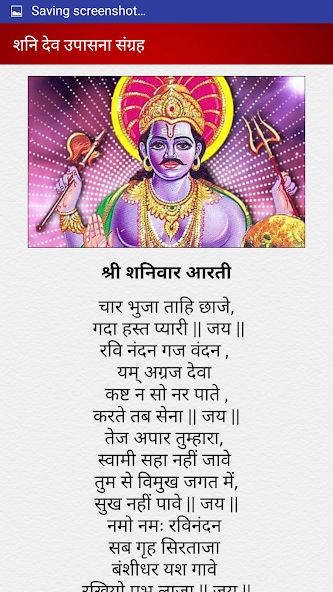 Saving screenshot...
शनि देव उपासना संग्रह
श्री शनिवार आरती
चार भुजा ताहि छाजे,
गदा हस्त प्यारी || जय ||
रवि नंदन गज वंदन ,
यम् अग्रज देवा
कष्ट न सो नर पाते ,
करते तब सेना || जय ||
तेज अपार तुम्हारा,
स्वामी सहा नहीं जावे
तुम से विमुख जगत में,
सुख नहीं पावे || जय ||
नमो नमः रविनंदन
सब गृह सिरताजा
बंशीधर यश गावे
रखियो प्रभु लाजा || जय ||